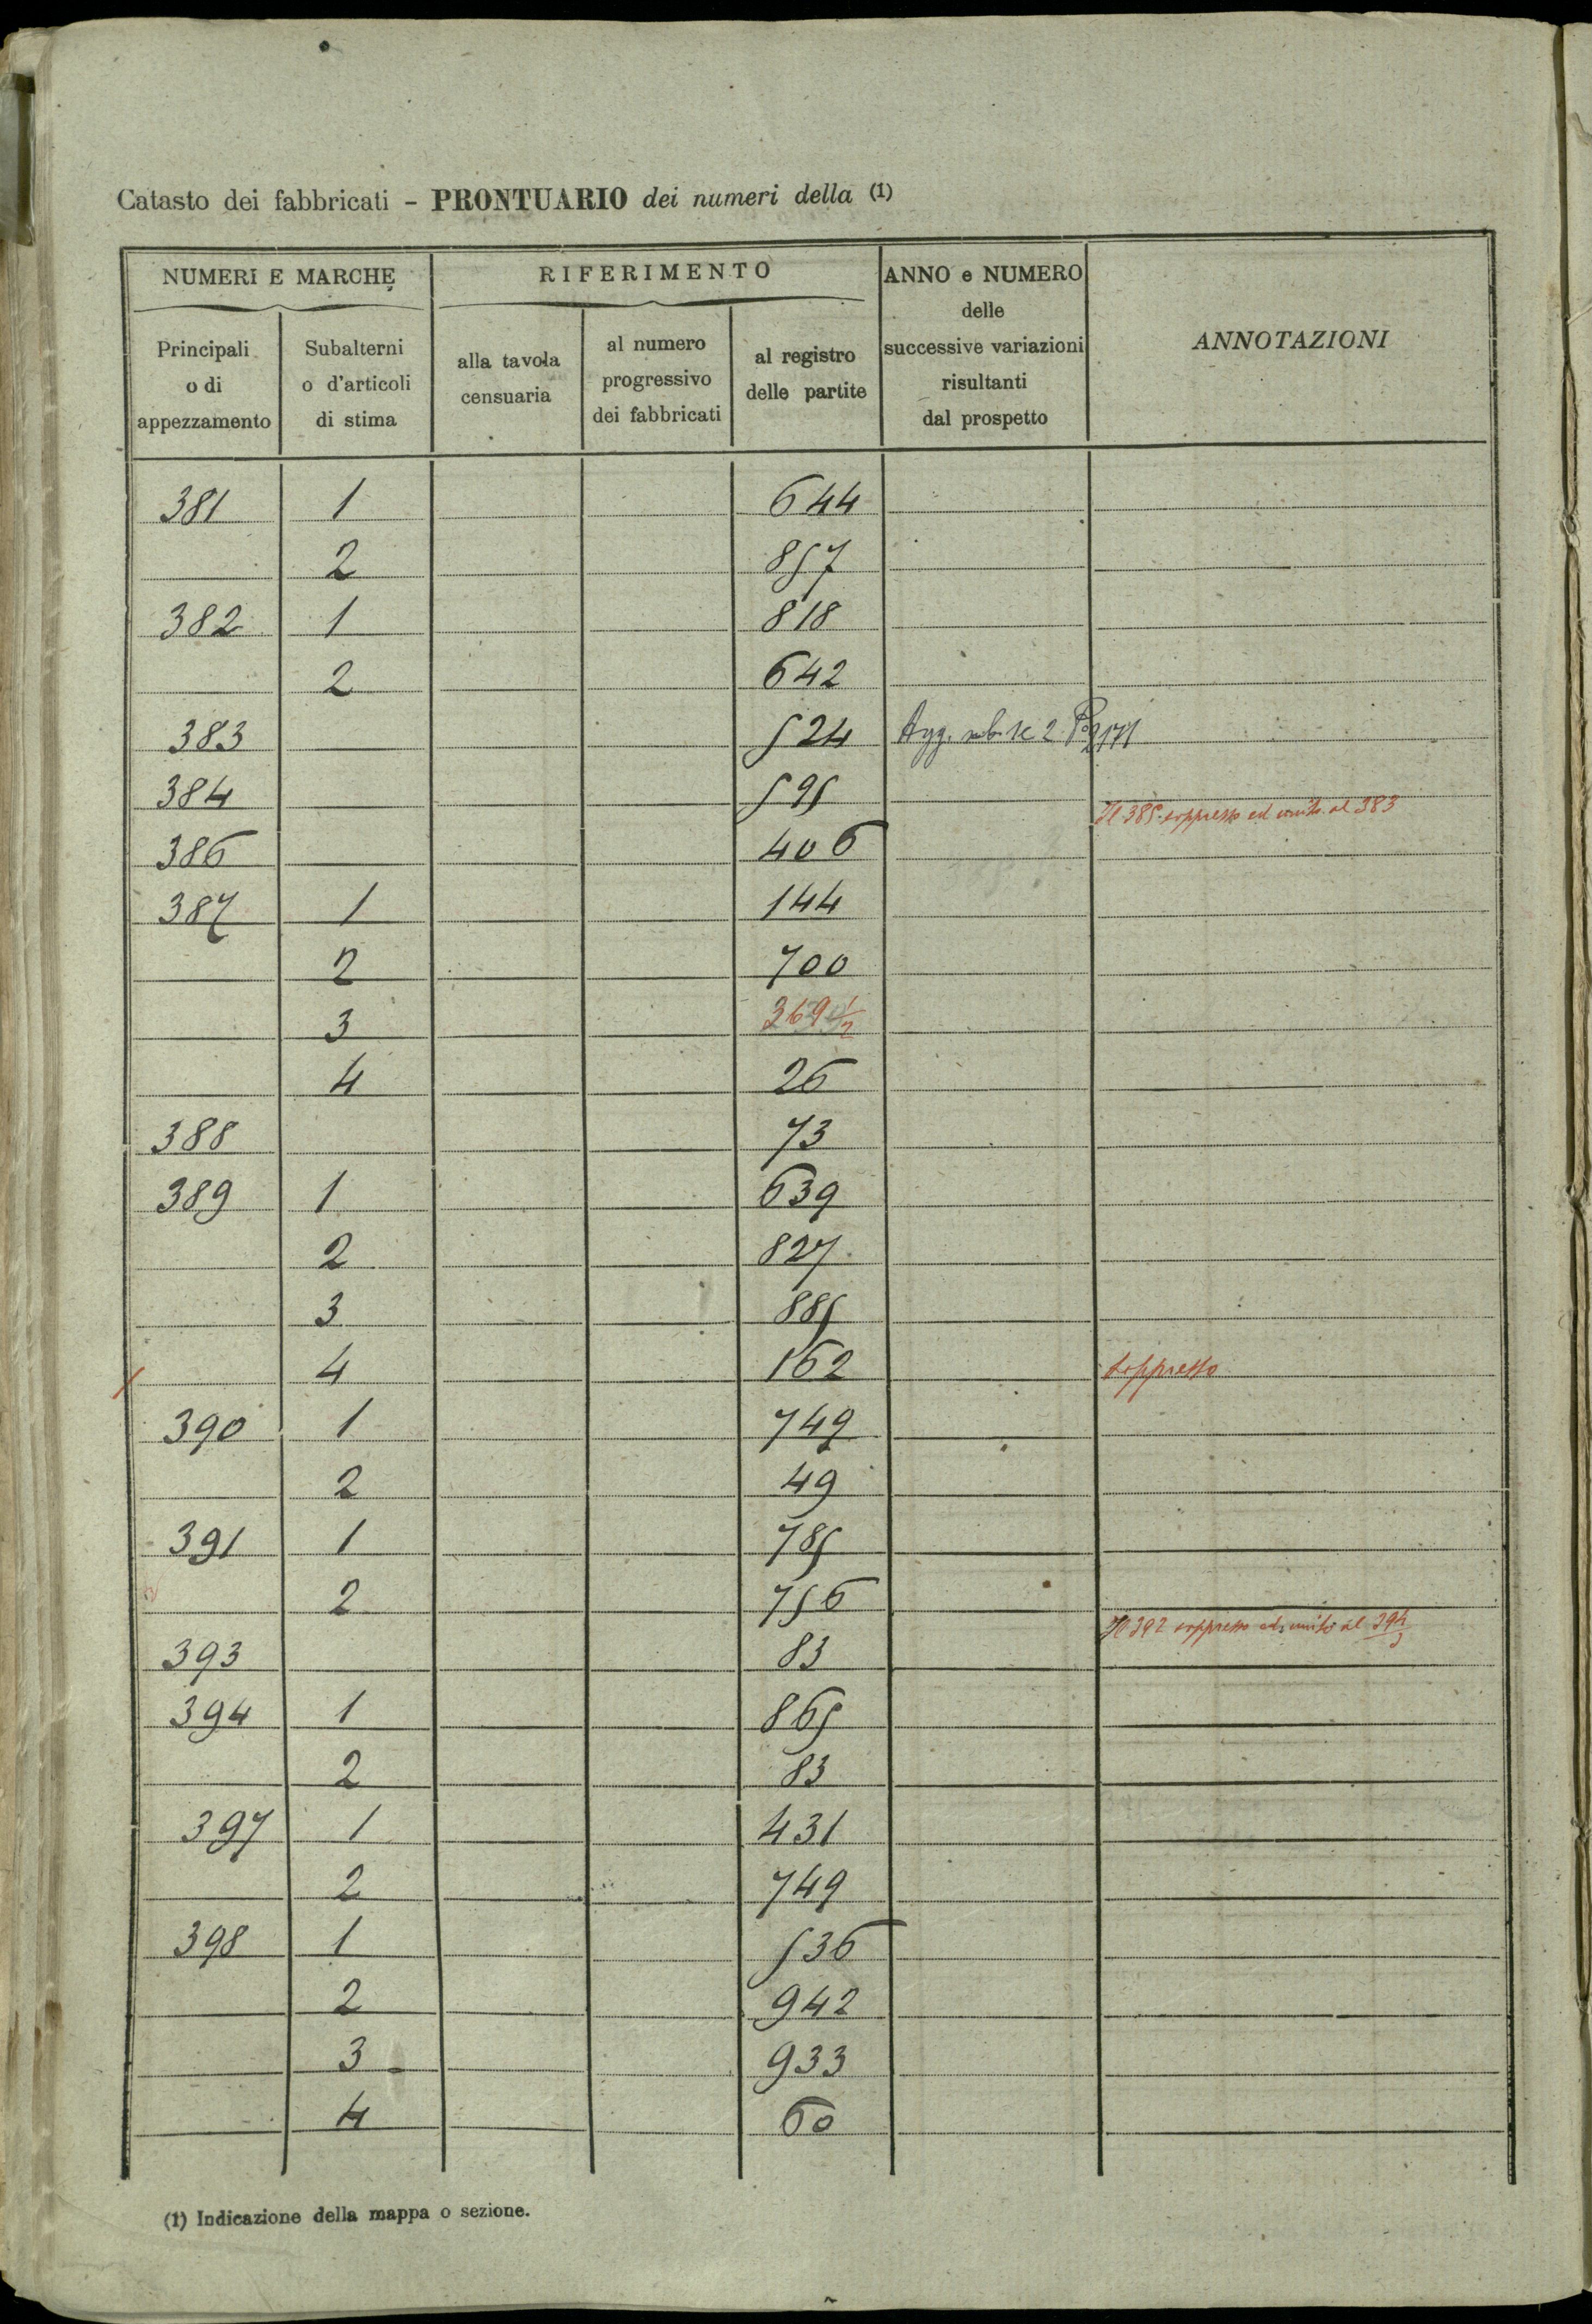 Catasto dei fabbricati - PRONTUARIO dei numeri della (1)
NUMERI E MARCHE RIFERIMENTO ANNO e NUMERO delle successive variazioni risultanti dal prospetto ANNOTAZIONI
Principali o di appezzamento Subalterni o d'articoli di stima alla tavola censuaria al numero progressivo dei fabbricati al registro delle partite
381 1 644
2 857
382 1 818
2 642
383 524 Agg. sub. 1 e 2
384 595
Il 385 soppresso ed unito al 383
386 406
387 1 144
2 700
3 369 1/2
4 26
388 73
389 1 639
2 827
3 885
4 162 soppresso
390 1 749
2 49
391 1 785
2 756
Il 392 soppresso ed unito al 394/3
393 83
394 1 865
2 83
397 1 431
2 749
398 1 536
2 942
3 933
4 60
(1) Indicazione della mappa o sezione.